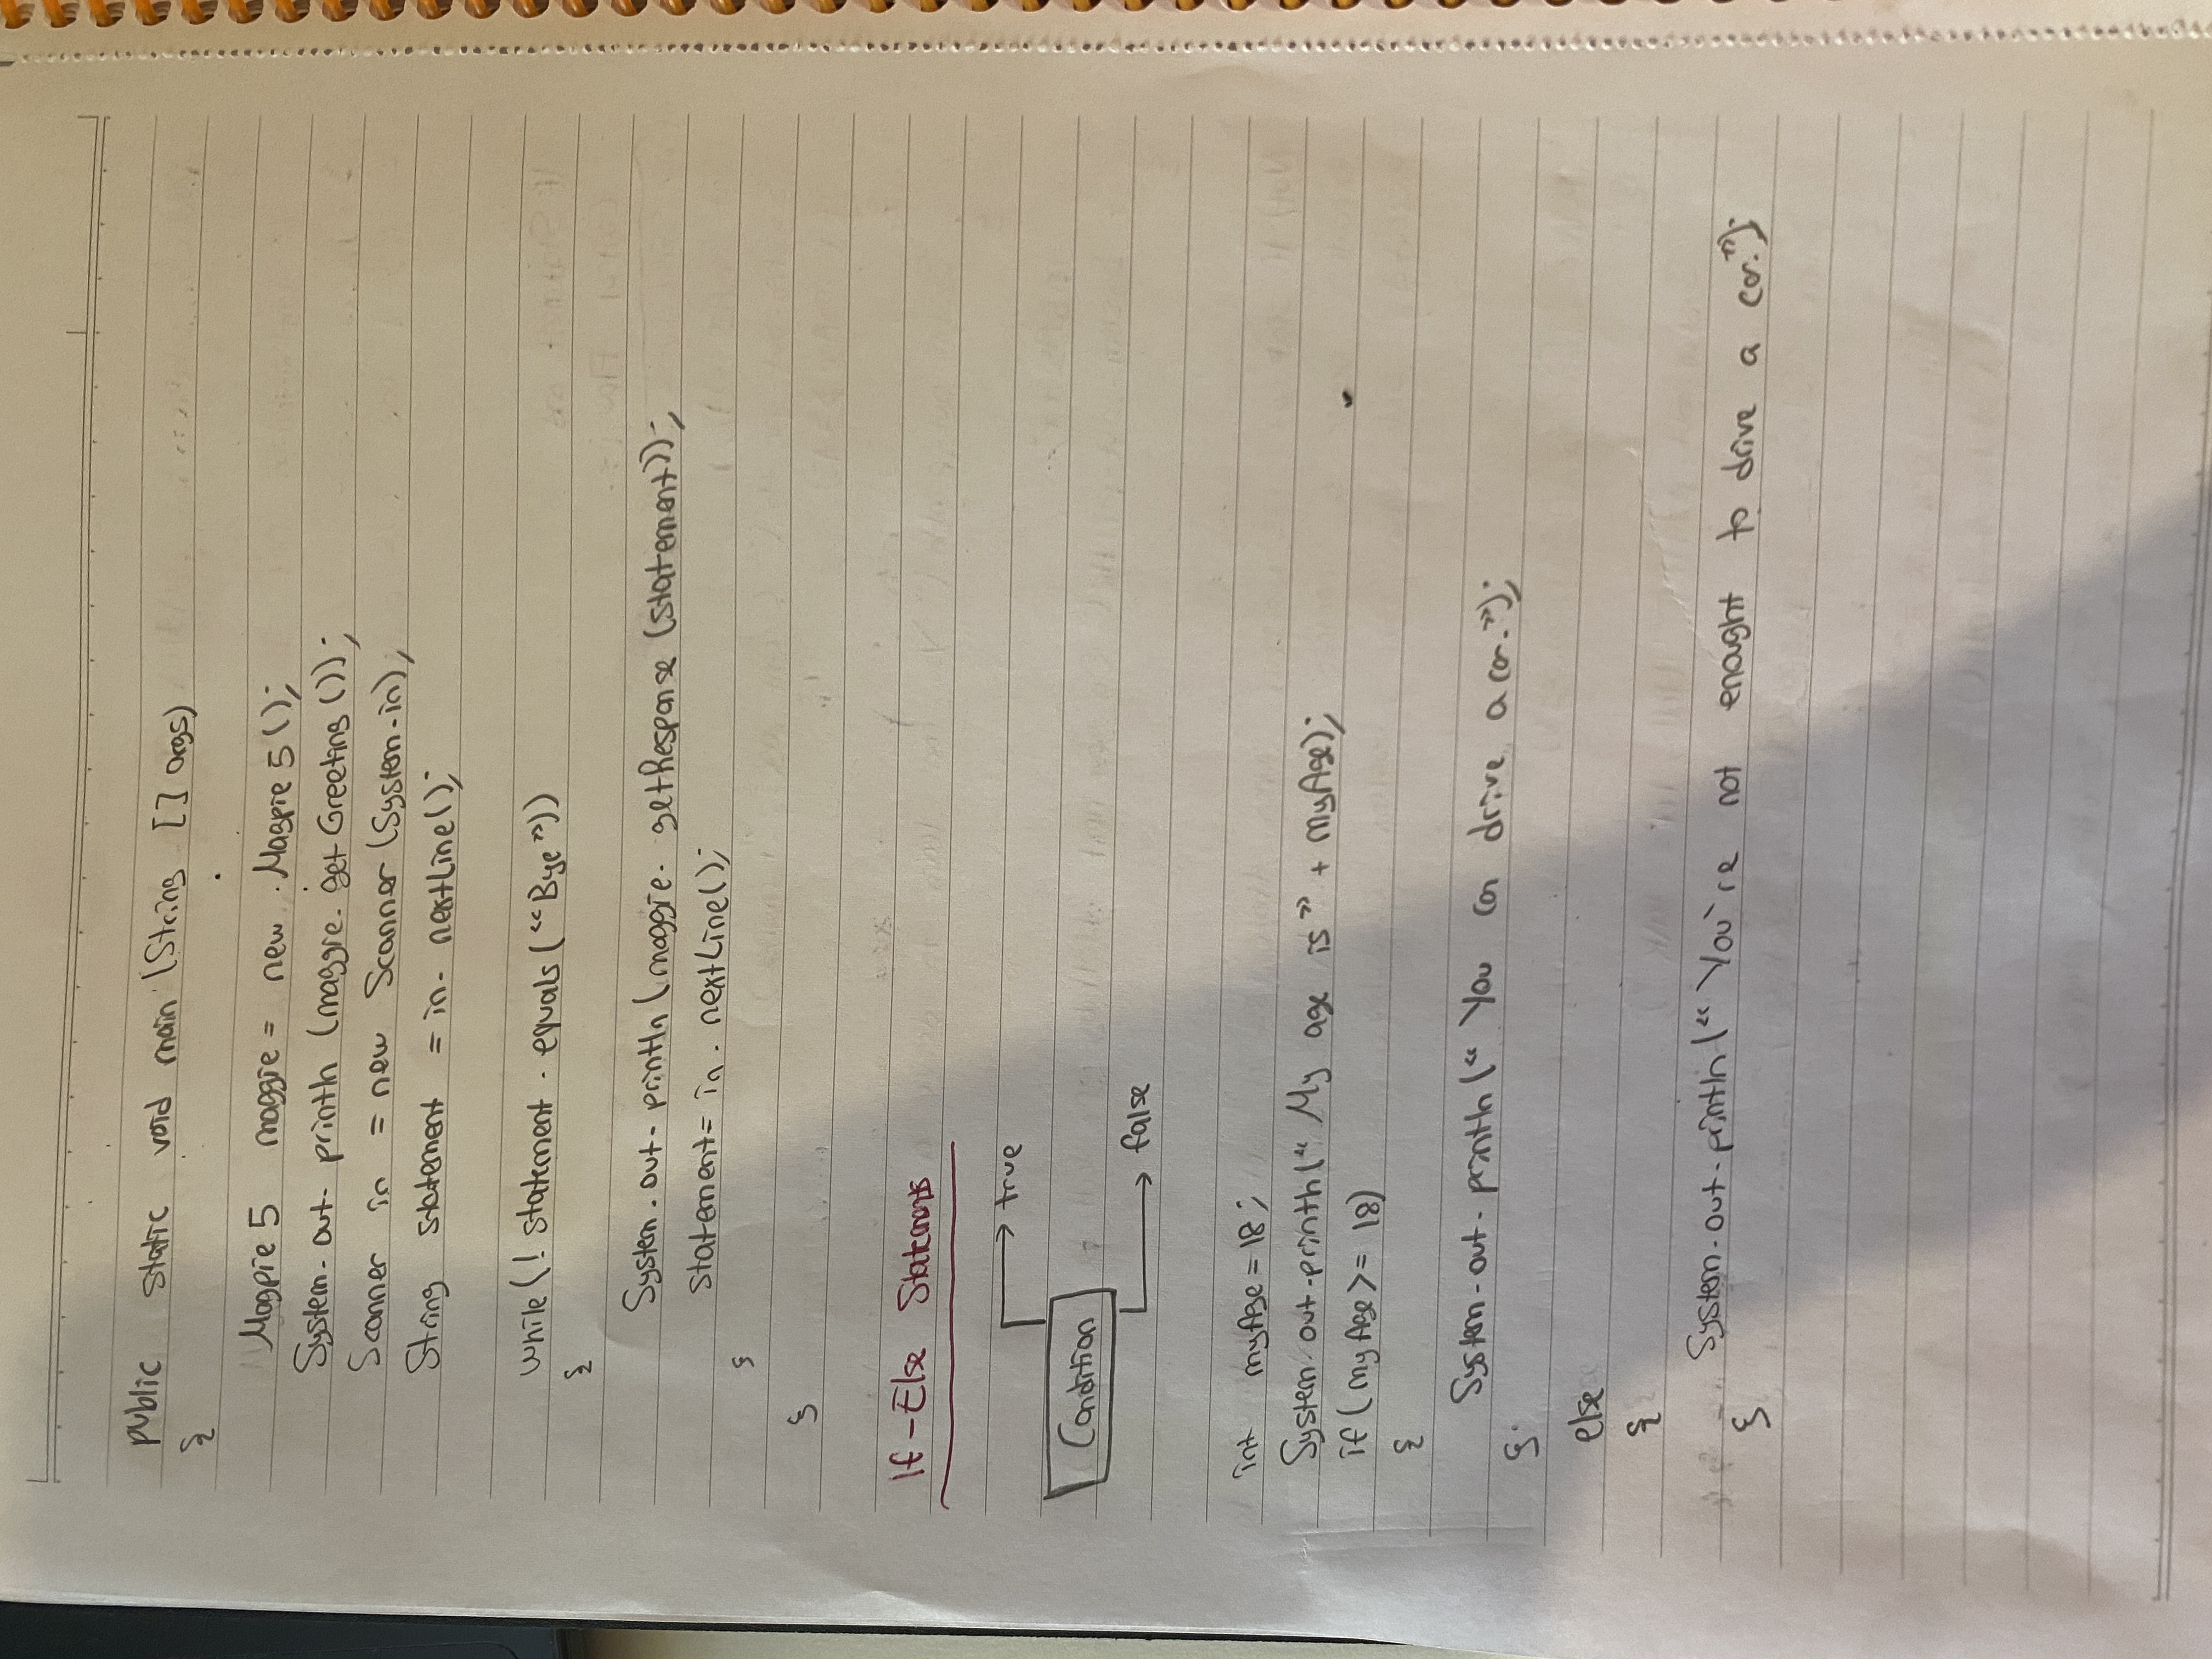 public static void main (String [] args)
{
Magpie 5 maggie = new Magpie 5 ();
System.out.println (maggie.getGreeting ());
Scanner in = new Scanner (System.in);
String statement = in.nextLine();
while (! statement.equals ("Bye"))
{
System.out.println (maggie.getResponse (statement));
statement = in.nextLine();
}
}
If-Else Statements
true
Condition
false
int myAge = 18;
System.out.println (" My age is" + myAge);
if (myAge >= 18)
{
System.out.println (" You can drive a car.");
}
else
{
System.out.println (" You're not enought to drive a car.");
}